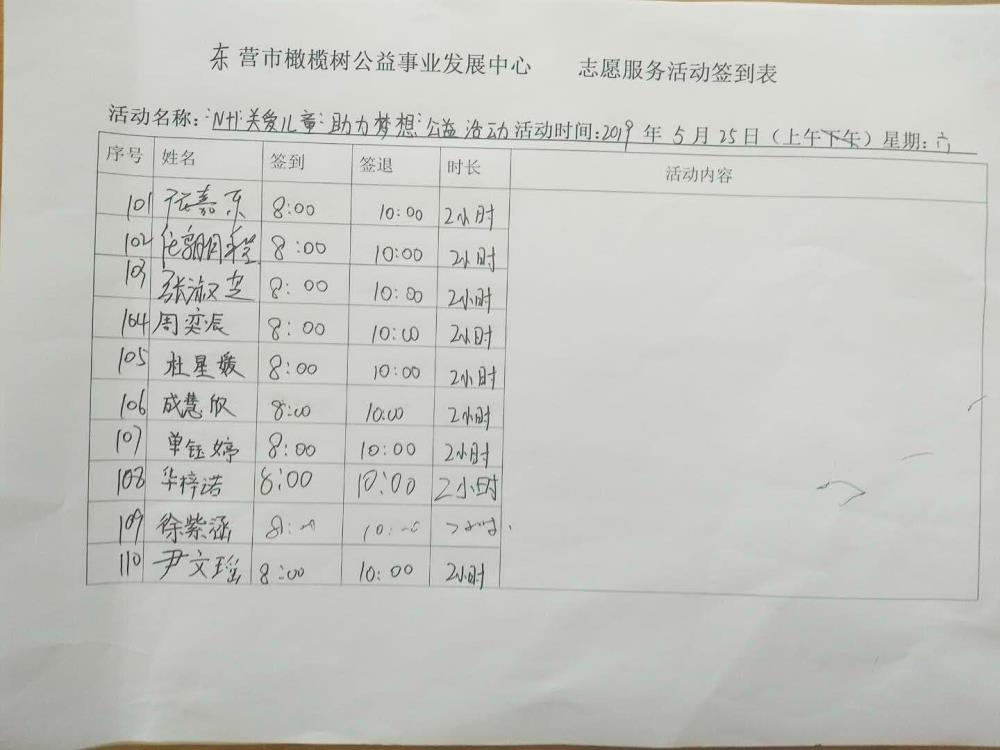 东营市橄榄树公益事业发展中心 志愿服务活动签到表
活动名称:"N+1关爱儿童"助力梦想"公益活动 活动时间:2019年5月25日(上午下午)星期:六
序号 姓名 签到 签退 时长 活动内容
101 张嘉乐 8:00 10:00 2小时
102 8:00 10:00 2小时
103 张淑芝 8:00 10:00 2小时
104 周奕辰 8:00 10:00 2小时
105 杜星媛 8:00 10:00 2小时
106 成慧欣 8:00 10:00 2小时
107 单钰婷 8:00 10:00 2小时
108 华梓诺 8:00 10:00 2小时
109 徐紫涵 8:00 10:00 2小时
110 尹文瑶 8:00 10:00 2小时